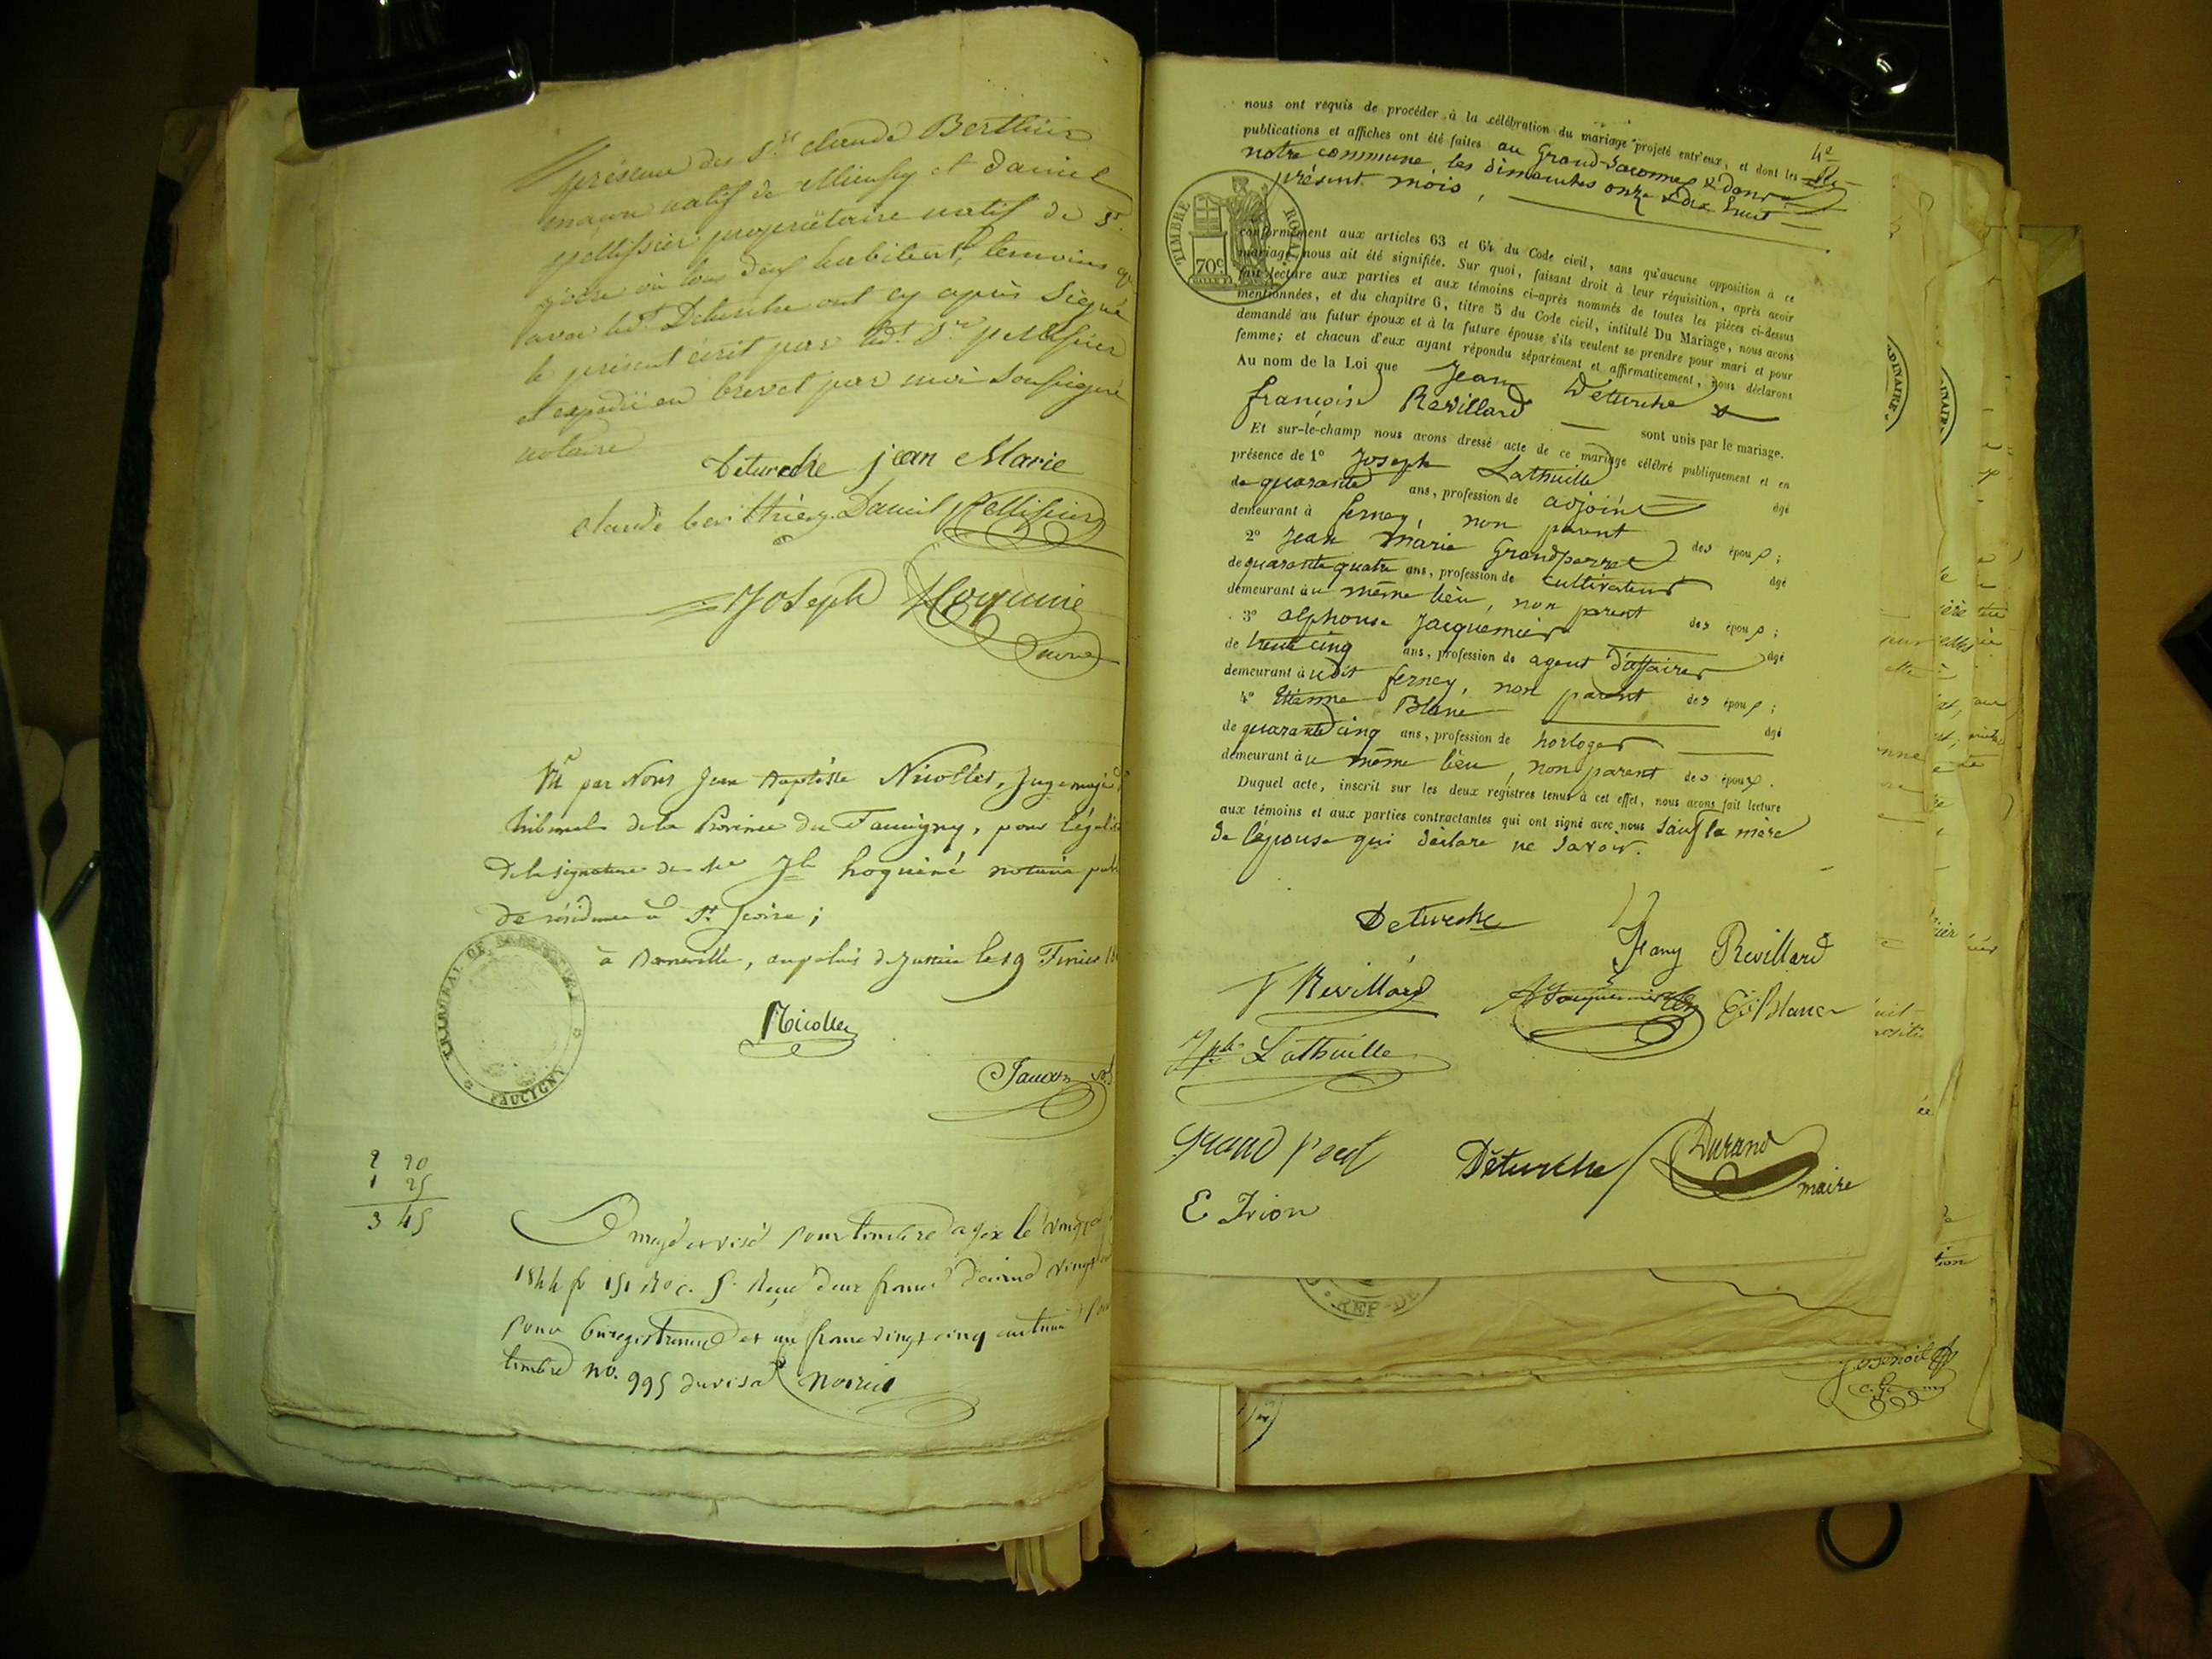 présence des Srs claude Berthier
maçon natif de Mieussy et Daniel
pellissier propriétaire natif de St
jeoire où tous deux habitent, temoins qui
avec led.t Deturche ont cy après signé
le présent écrit par led.t Sr pellissier
et expedié en brevet par moi soussigné
notaire
Deturche jean Marie
claude berthier Daniel Pellissier
Joseph
notre
Vu par Nous Jean Baptiste Nicollet, Juge maje
tribunal de la Province du Faucigny, pour légali
de la signature de Me Jh hoguiné notaire pub
de résidence à St Jeoire;
à Bonneville, au palais de Justice le 19 Fevrier 18
Nicollet
TRIBUNAL DE
FAUCIGNY
2 20
1 25
3 45
visé pour timbre à gex le vingt
1844 fo 151 Ro c. 5. Reçu deux francs décime vingt
pour Enregistrement et un franc vingt cinq centimes pour
timbre no. 995 du visa
4e
nous ont requis de procéder à la célébration du mariage projeté entr'eux, et dont les
publications et affiches ont été faites au Grand-Saconnex & dans
notre commune les dimanches onze & dix huit
présent mois,
TIMBRE ROYAL
70c
conformément aux articles 63 et 64 du Code civil, sans qu'aucune opposition à ce
mariage nous ait été signifiée. Sur quoi, faisant droit à leur réquisition, après avoir
fait lecture aux parties et aux témoins ci-après nommés de toutes les pièces ci-dessus
mentionnées, et du chapitre 6, titre 5 du Code civil, intitulé Du Mariage, nous avons
demandé au futur époux et à la future épouse s'ils veulent se prendre pour mari et pour
femme; et chacun d'eux ayant répondu séparément et affirmativement, nous déclarons
Au nom de la Loi que Jean Deturche &
françoise Revillard sont unis par le mariage.
Et sur-le-champ nous avons dressé acte de ce mariage célébré publiquement et en
présence de 1° Joseph Lathuille âgé
de quarante ans, profession de adjoint
demeurant à ferney, non parent des époux;
2° Jean Marie Grandperret âgé
de quarante quatre ans, profession de cultivateur
demeurant au même lieu, non parent des époux;
3° alphonse Jacquemier âgé
de trente cinq ans, profession de agent d'affaires
demeurant audit ferney, non parent des époux;
4° Etienne Blanc âgé
de quarante cinq ans, profession de horloger
demeurant au même lieu, non parent des époux.
Duquel acte, inscrit sur les deux régistres tenus à cet effet, nous avons fait lecture
aux témoins et aux parties contractantes qui ont signé avec nous sauf la mère
de l'épouse qui déclare ne savoir.
Deturche
Fany Revillard
F Revillard
Et Blanc
Jph Lathuille
Deturche
Durand
maire
E Irion